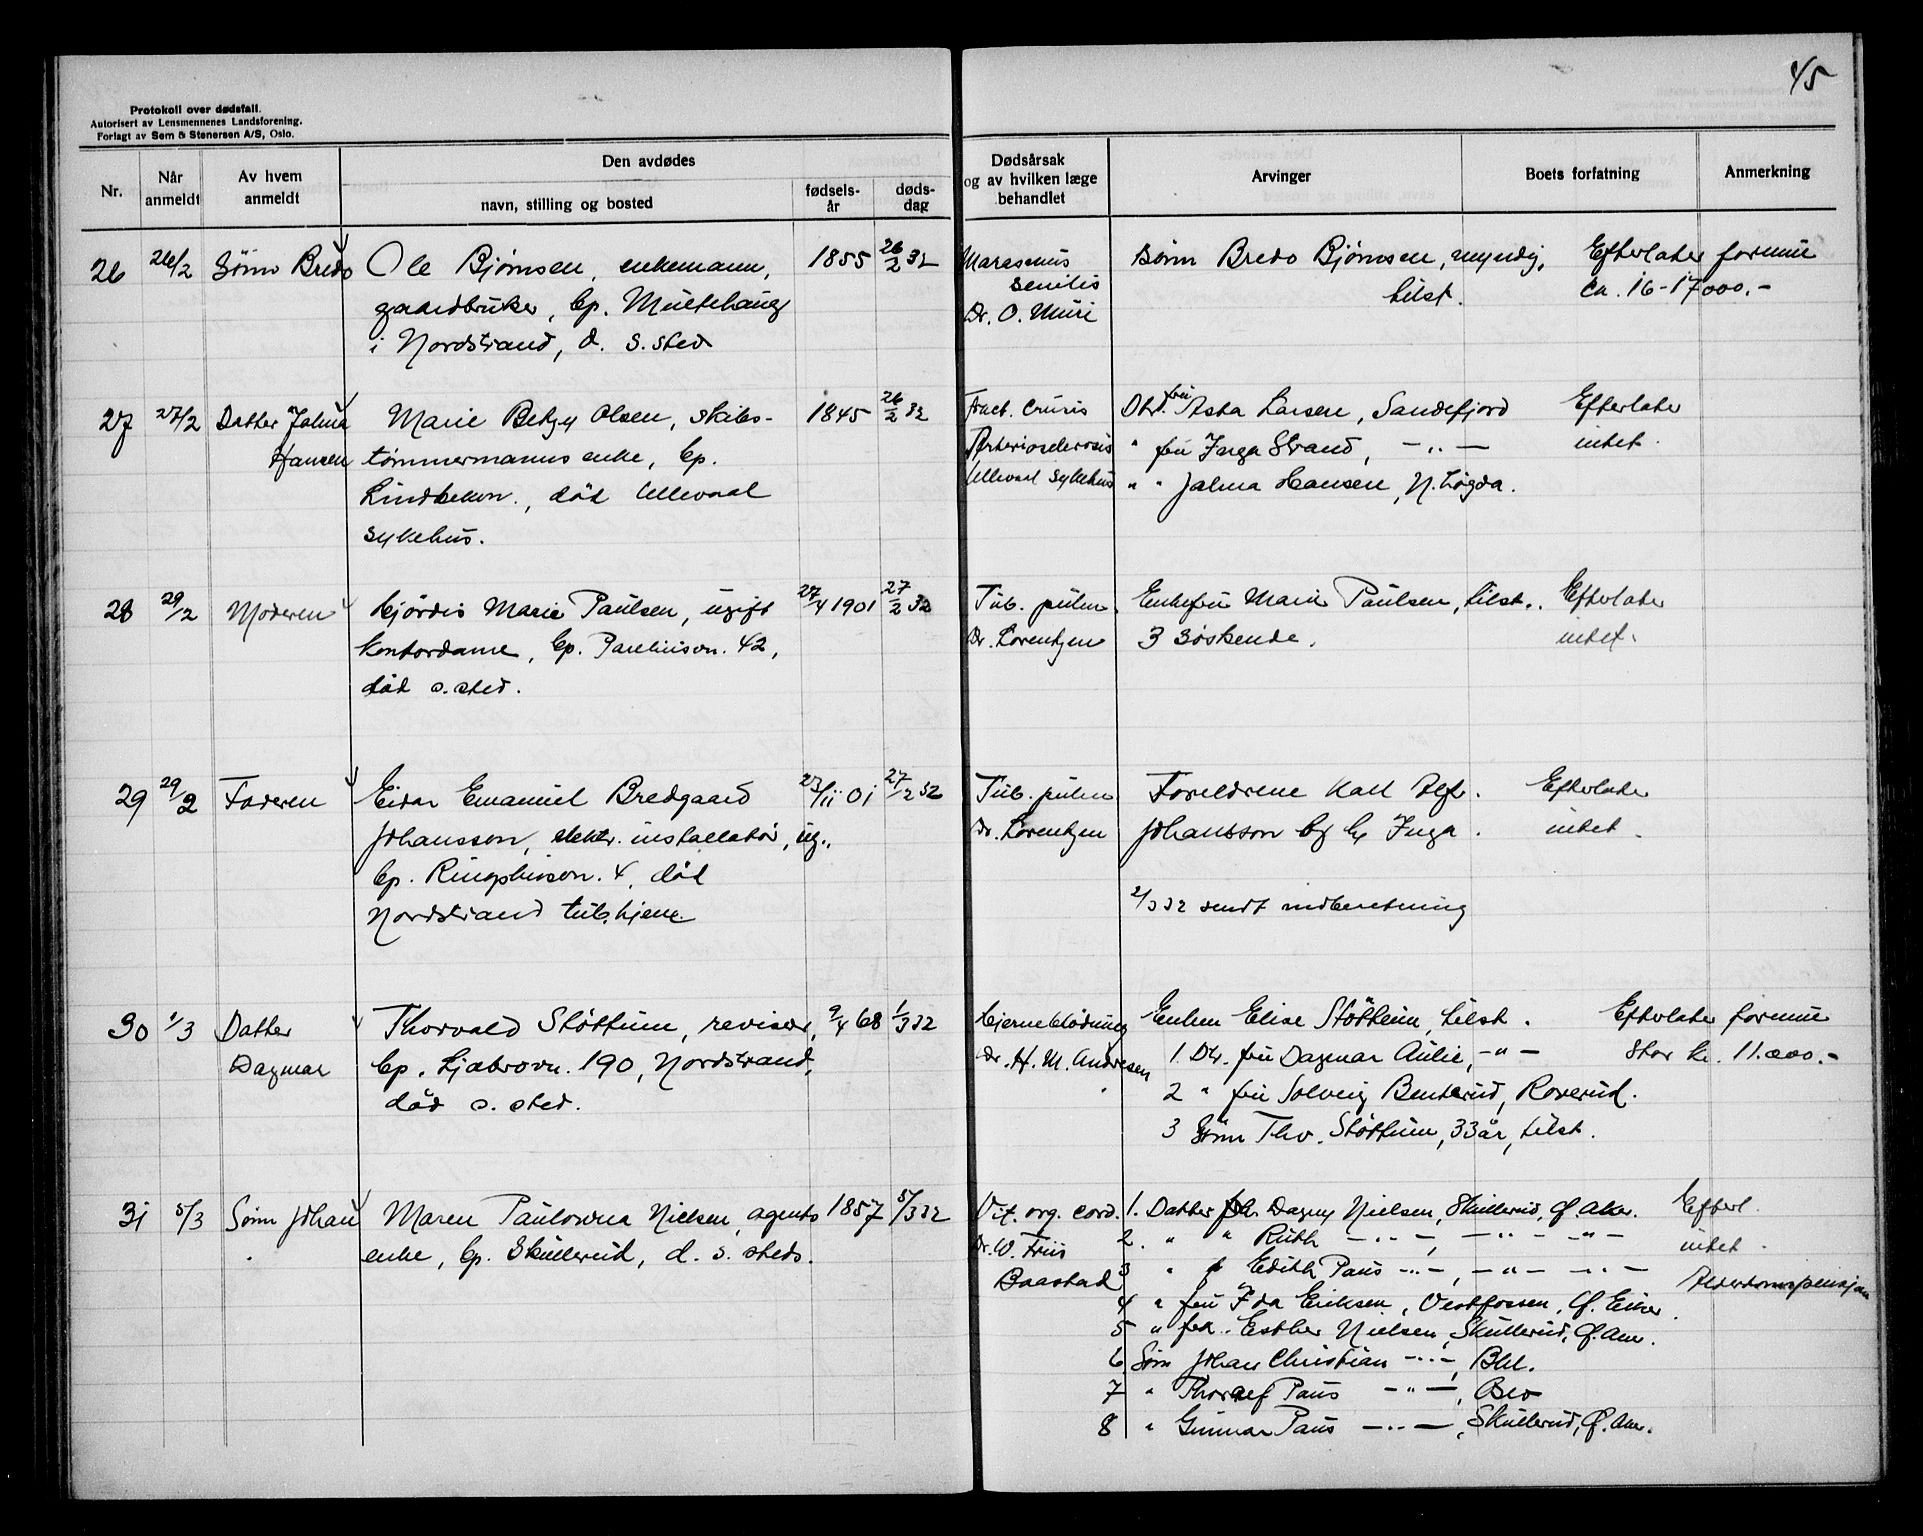 45
Protokoll over dødsfall.
Autorisert av Lensmennenes Landsforening.
Forlagt av Sem & Stenersen A/S, Oslo.
Nr.
Når anmeldt
Av hvem anmeldt
Den avdødes
navn, stilling og bosted
fødsels-år
døds-dag
Dødsårsak og av hvilken læge behandlet
Arvinger
Boets forfatning
Anmerkning
26 26/2 Sønn Bredo Ole Bjørnsen, enkemann, 1855 26/2 32 Marasmus Sønn Bredo Bjørnsen, myndig, Efterlater formue
gaardbruker, bp. Multehaug senilis tilst. ca. 16-17000.-
i Nordstrand, d. s. sted Dr. O. Muri
27 27/2 Datter Jalma Marie Betzy Olsen, skibs- 1845 26/2 32 Fract. cruris Dtr. fru Asta Larsen, Sandefjord Efterlater
Hansen tømmermanns enke, bp. Arteriosclerosis " fru Inga Strand, — " — intet.
død Ullevaal Ullevaal sykehus " " Jalma Hansen, N. Løgda.
sykehus.
28 29/2 Moderen Hjördis Marie Paulsen, ugift 27/4 1901 27/2 32 Tub. pulm. Enkefru Marie Paulsen, tilst. Efterlater
kontordame, bp. 42, Dr. Lorentzen 3 søskende. intet.
död s. sted.
29 29/2 Faderen Eidar Emanuel Bredgaard 27/11 01 27/2 32 Tub. pulm Foreldrene Karl Alf. Efterlater
Johansson, elektr. installatør, ug., Dr. Lorentzen Johansson og h. Inga. intet.
bp. 4, död
Nordstrand tub.hjem. 2/3 32 sendt indberetning
30 1/3 Datter Thorvald Støttum, revisor, 9/4 68 1/3 32 Hjerneblödning Enken Elise Støttum, tilst. Efterlater formue
Dagmar bp. Ljabrovn. 190, Nordstrand, Dr. H. M. Andresen 1. Dtr. fru Dagmar Aulie, -"- stor kr. 11.000.-
död s. sted. 2 " fru Solveig Benterud, Roverud.
3 Sønn Thv. Støttum, 33 år, tilst.
31 5/3 Sønn Johan Maren Paulowna Nielsen, agents 1857 5/3 32 Vit. org. cord. 1. Datter frk. Dagny Nielsen, Skullerud, Ø. Aker. Efterl.
enke, bp. Skullerud, d. s. steds. Dr. W. Friis 2. " " Ruth — " —, — " — — " — intet.
Baastad 3 " " Edith Paus — " —, — " — — " — Alderdomspensjon
4 " fru Ida Eriksen, Vestfossen, Ø. Eiker.
5 " frk. Esther Nielsen, Skullerud, Ø. Aker.
6 Sønn Johan Christian — " —, Bhl.
7 " Thoralf Paus — " —, Oslo
8 " Gunnar Paus — " —, Skullerud, Ø. Aker.